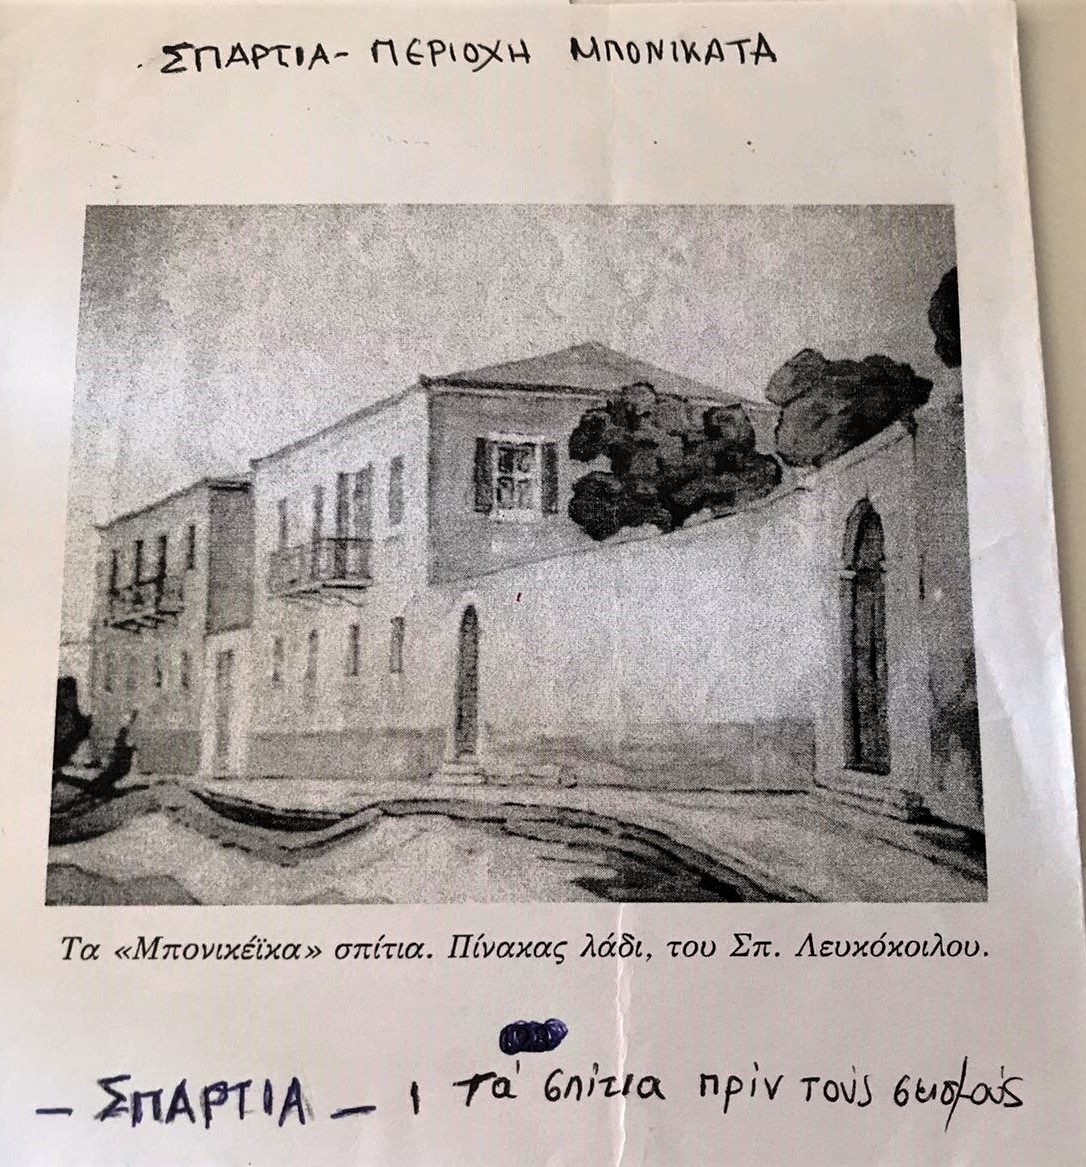 ΣΠΑΡΤΙΑ - ΠΕΡΙΟΧΗ ΜΠΟΝΙΚΑΤΑ
Τα «Μπονικέϊκα» σπίτια. Πίνακας λάδι, του Σπ. Λευκόκοιλου.
- ΣΠΑΡΤΙΑ - τά σπίτια πρίν τούς σεισμούς